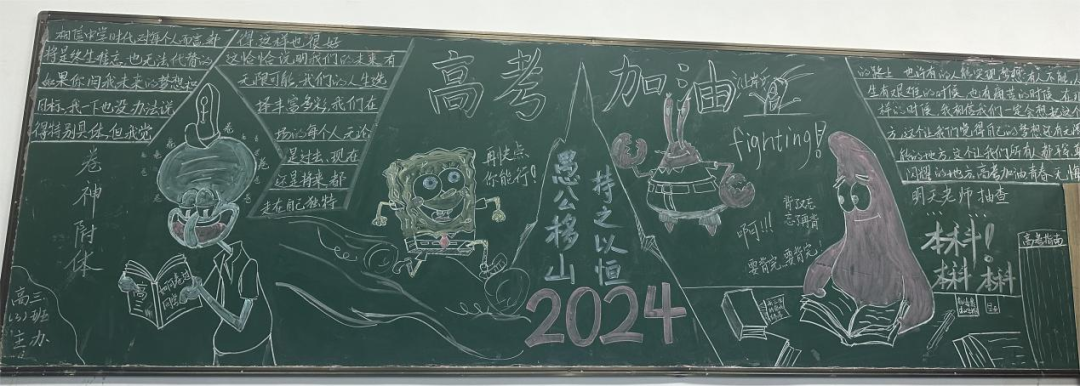 相信中学时代对每个人而言都
将是终生难忘,也无法代替的
如果你问我未来的梦想和
目标,我一下也没办法说
得特别具体,但我觉
得这样也很好
这恰恰说明我们的未来有
无限可能,我们的人生选
择丰富多彩,我们在
场的每个人无论
是过去、现在
还是将来都
走在自己独特
高考 加油
卷神附体
高三
(3)班
主办
高三
再快点,
你能行!
愚公移山
持之以恒
2024
fighting!
啊啊!!!
要背完,要背完
的路上
生有艰难的时候,也有痛苦的时候
样的时候,我相信我们一定会想起这个
方,这个让我们觉得自己的梦想还有
的地方,这个让我们所有人都
闪耀的地方,高考加油青春无悔
明天老师抽查
本科!
本科 本科
高考指南